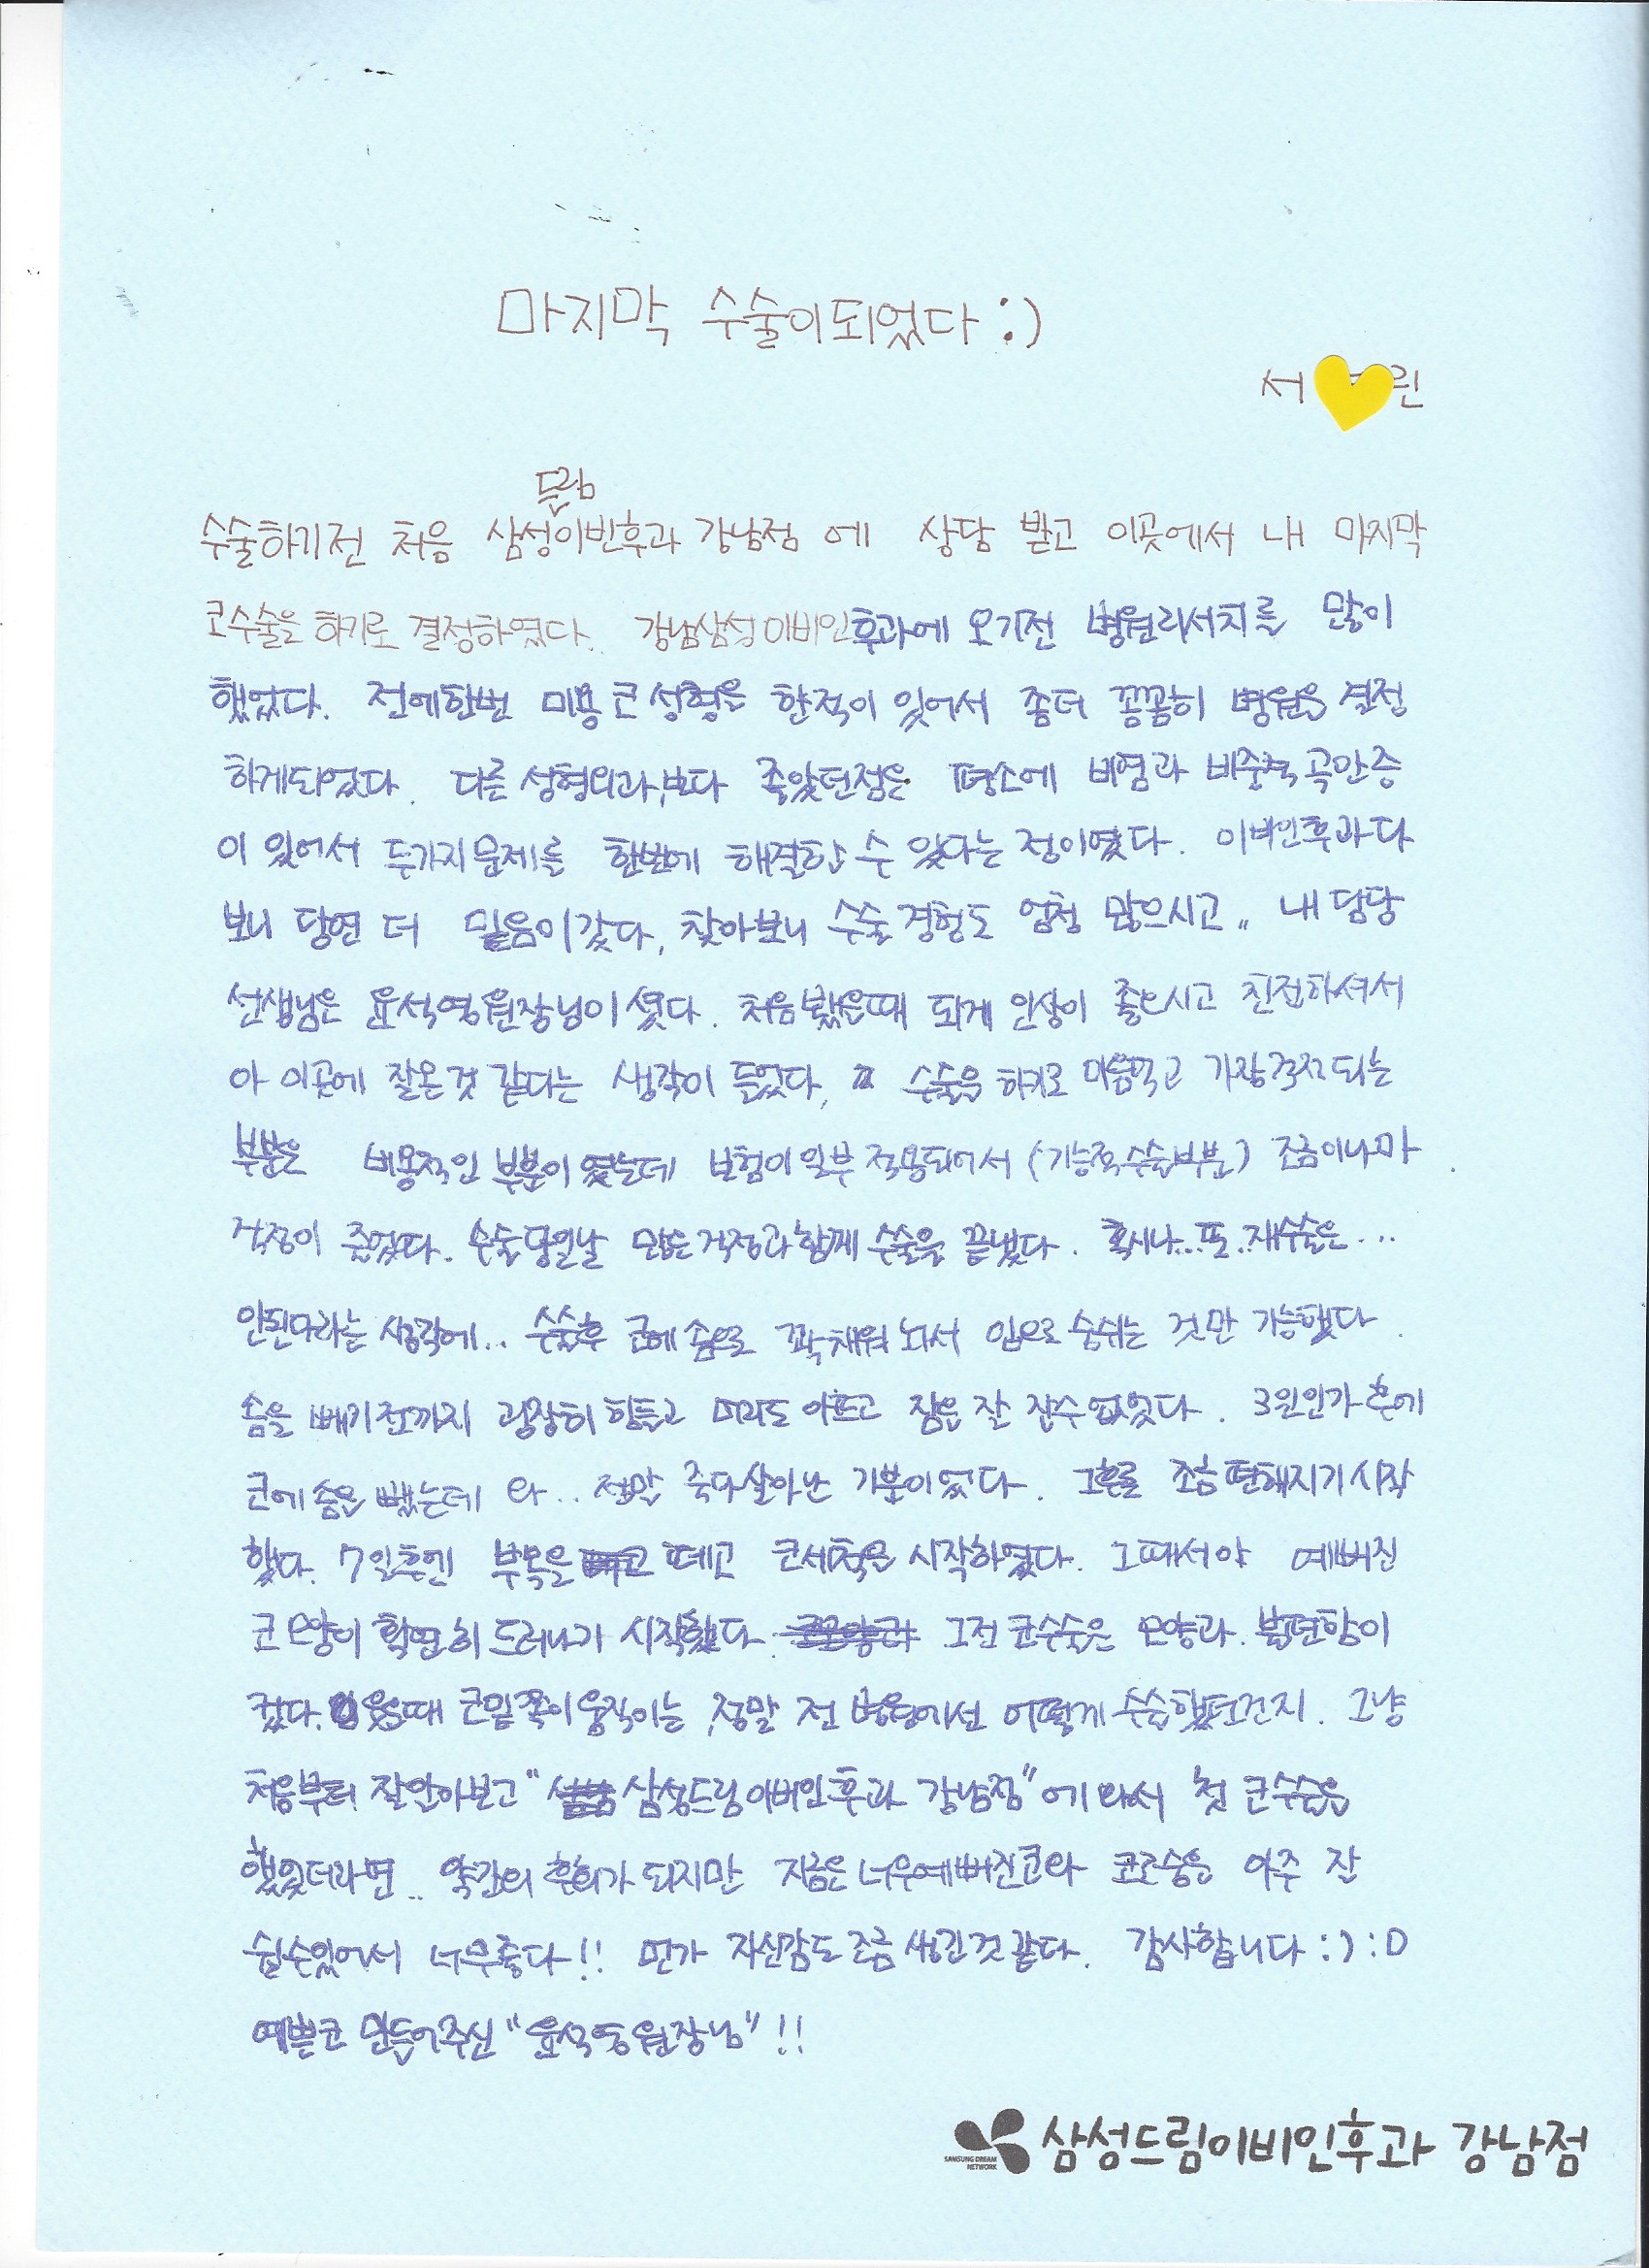 마지막 수술이되었다 :)
서 린
드림
수술하기전 처음 삼성이빈후과 강남점 에 상담 받고 이곳에서 내 마지막
코수술을 하기로 결정하였다. 강남삼성이비인후과에 오기전 병원리서치를 많이
했었다. 전에한번 미용코성형을 한적이 있어서 좀더 꼼꼼히 병원을 결정
하게되었다. 다른 성형외과보다 좋았던점은 평소에 비염과 비중격 곡만증
이 있어서 두가지문제를 한번에 해결할 수 있다는 점이였다. 이비인후과다
보니 당연 더 믿음이갔다, 찾아보니 수술경험도 엄청 많으시고.. 내 담당
선생님은 윤석영원장님이셨다. 처음봤을때 되게 인상이 좋으시고 친절하셔서
아 이곳에 잘온것 같다는 생각이 들었다, 수술을 하기로 마음먹고 가장걱정되는
부분은 비용적인 부분이였는데 보험이일부 적용되어서 (기능적수술부분) 조금이나마
걱정이 줄었다. 수술당일날 많은걱정과함께 수술을 끝냈다. 혹시나...또..재수술은...
안된다라는 생각에... 수술후 코에솜으로 꽉채워놔서 입으로숨쉬는 것만 가능했다.
솜을 빼기전까지 굉장히힘들고 머리도 아프고 잠을 잘 잘수없었다. 3일인가 후에
코에솜을 뺐는데 와.. 정말 죽다살아난 기분이었다. 그후로 조금편해지기시작
했다. 7일후엔 부목을 떼고 코세척을 시작하였다. 그때서야 예뻐진
코모양이 확연히드러나기 시작했다. 그전코수술은 모양과 불편함이
컸다. 웃을때 코밑쪽이움직이는, 정말 전 병원에선 어떻게 수술했던건지. 그냥
처음부터 잘알아보고 " 삼성드림이비인후과 강남점"에와서 첫 코수술을
했었더라면.. 약간의 후회가 되지만 지금은너무예뻐진코와 코로숨을 아주 잘
쉴수있어서 너무좋다!! 먼가 자신감도조금생긴것같다. 감사합니다 :) :D
예쁜코 만들어주신 "윤석영원장님" !!
SAMSUNG DREAM
NETWORK
삼성드림이비인후과 강남점